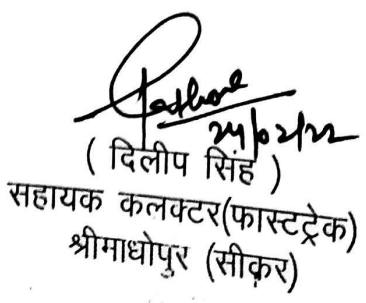 24/02/22
( दिलीप सिंह )
सहायक कलक्टर(फास्टट्रेक)
श्रीमाधोपुर (सीकर)